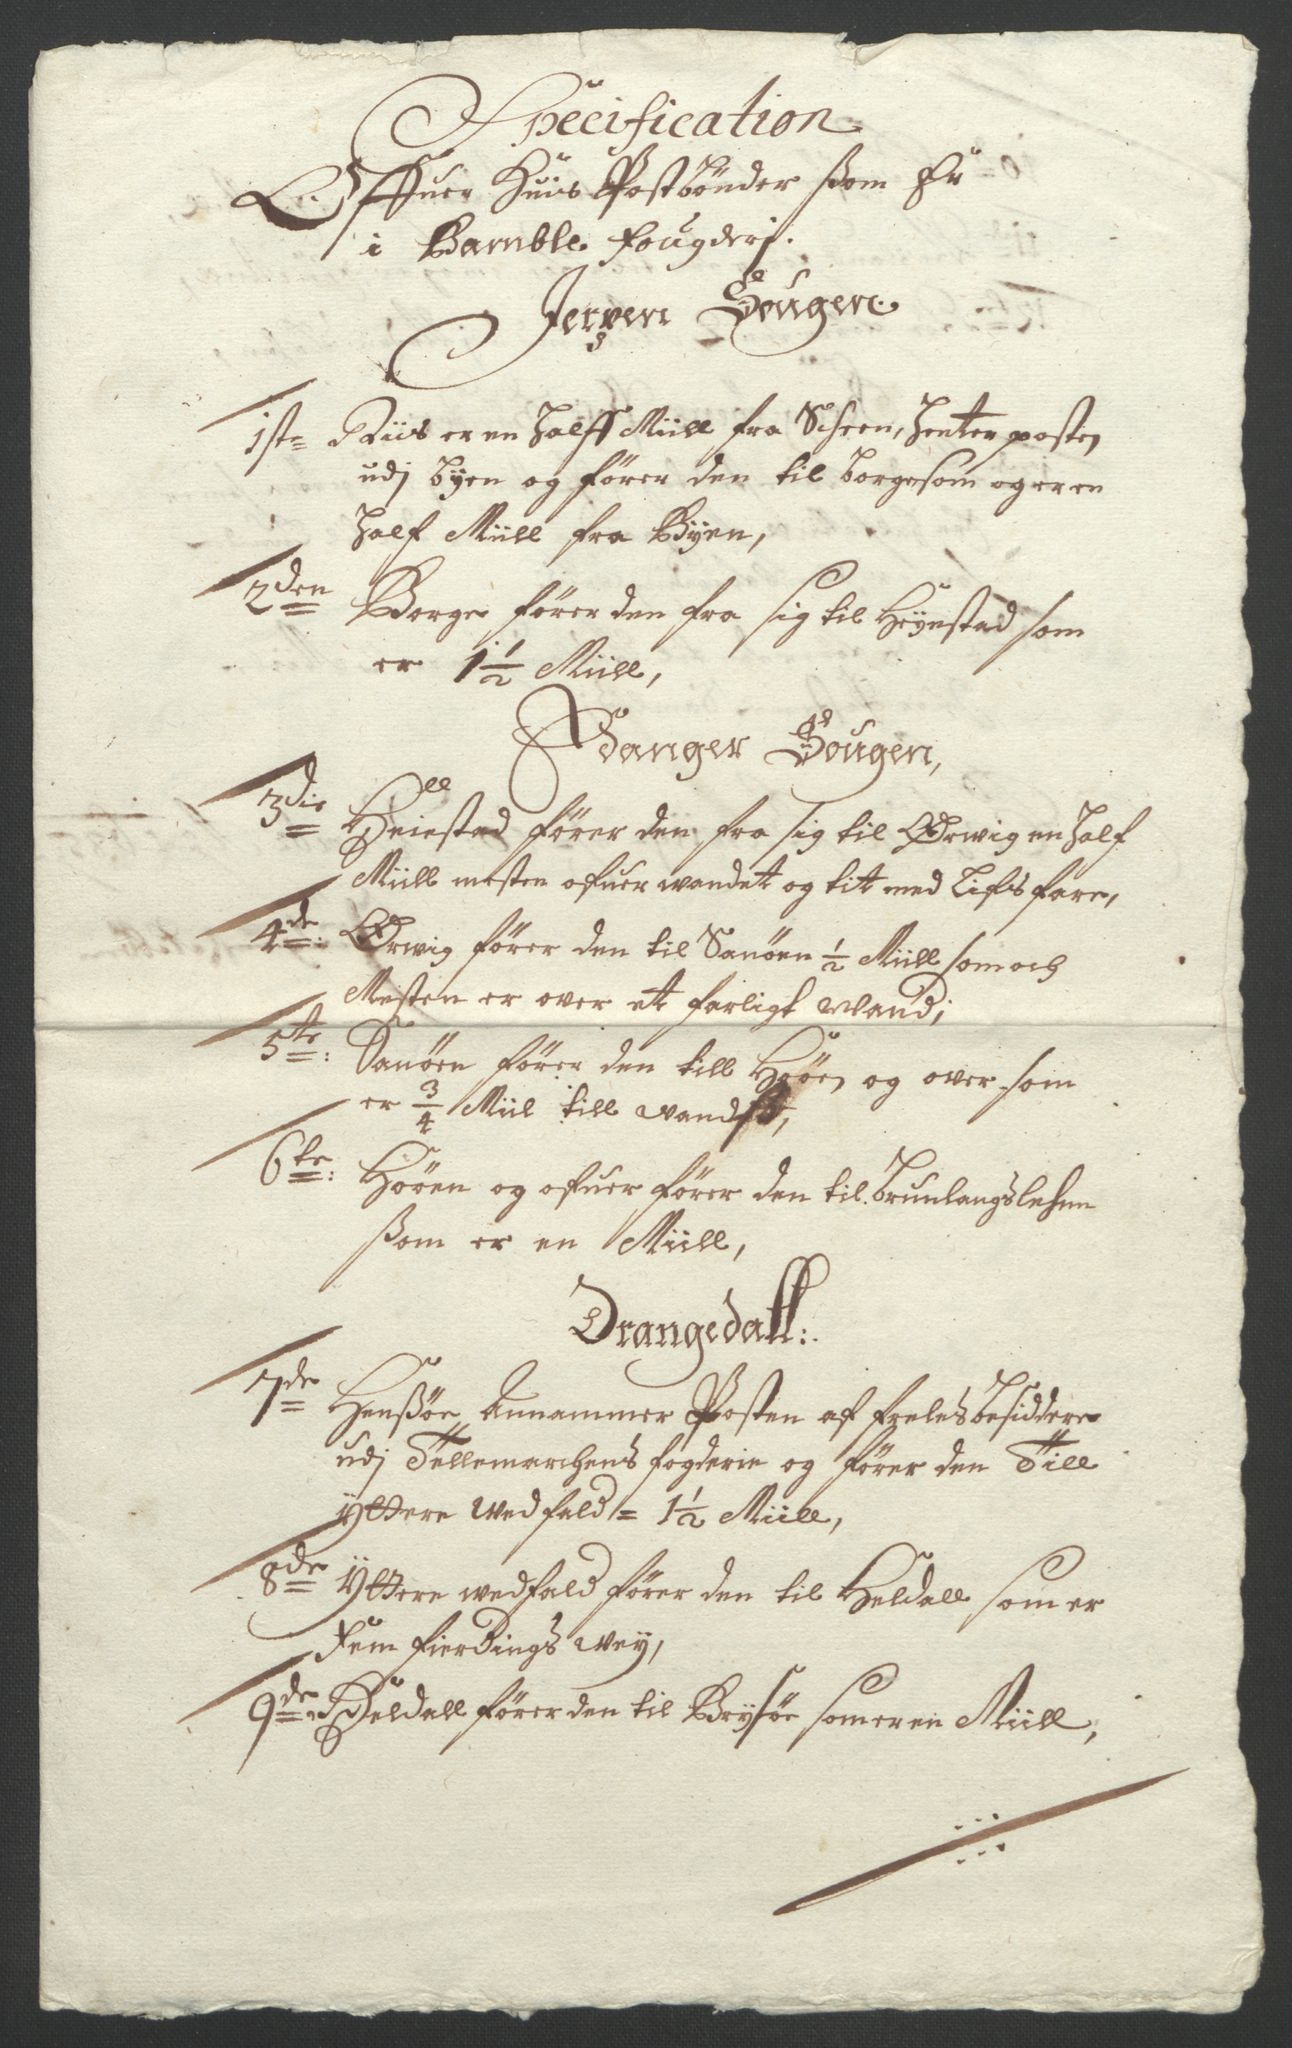 Specification
Offuer Huis Postbønder som Er
i Bamble fougderj.
Jerpen Sougen
1ste Riis er en halff Miill fra Scheen, henter posten
udj byen og fører den til borge som og er en
half Miill fra Byen,
2den Borge fører den fra sig til Heyestad som
er 1½ Miill,
Edanger Sougen,
3die Heiestad fører den fra sig til Ørwig en half
Miill mesten ofuer wandet og tit med Lifs fare,
4de: Ørwig fører den til Sanøen ½ Miill som och
Mesten er over et farligt wand;
5te: Sanøen fører den till Høøen og over som
er ¾ Miil till wandß,
6te: Høøen og ofuer fører den til Brunlangslehn
som er en Miill,
Drangedall:
7de Henßøe Annammer Posten af
udj Tellemarchens fogderie og fører den Till
Yttere wedfald = 1½ Miill,
8de Yttere wedfald fører den til Heldall som er
Fem fierdings wey,
9de Heldall fører den til Brysøe som er en Miill,